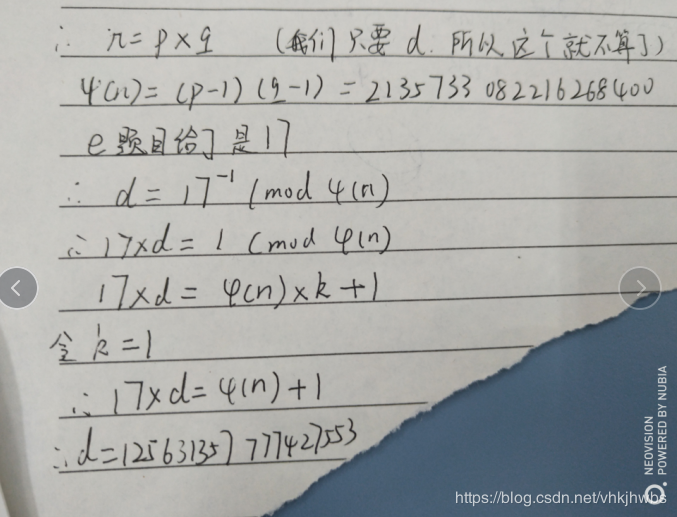 ∴ n = p × q (我们只要 d. 所以这个就不算了)
φ(n) = (p-1) (q-1) = 2135733 082216268400
e 题目给了是17
∴ d = 17⁻¹ (mod φ(n)
∴ 17×d = 1 (mod φ(n)
17×d = φ(n)×k+1
令 k=1
∴ 17×d = φ(n)+1
∴ d=125631357777427553
NEOVISION
POWERED BY NUBIA
https://blog.csdn.net/vhkjhwbs